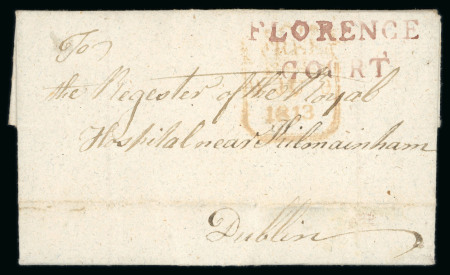 FLORENCE
COURT
1813
To
the Regester of the Royal
Hospital near Kilmainham
Dublin